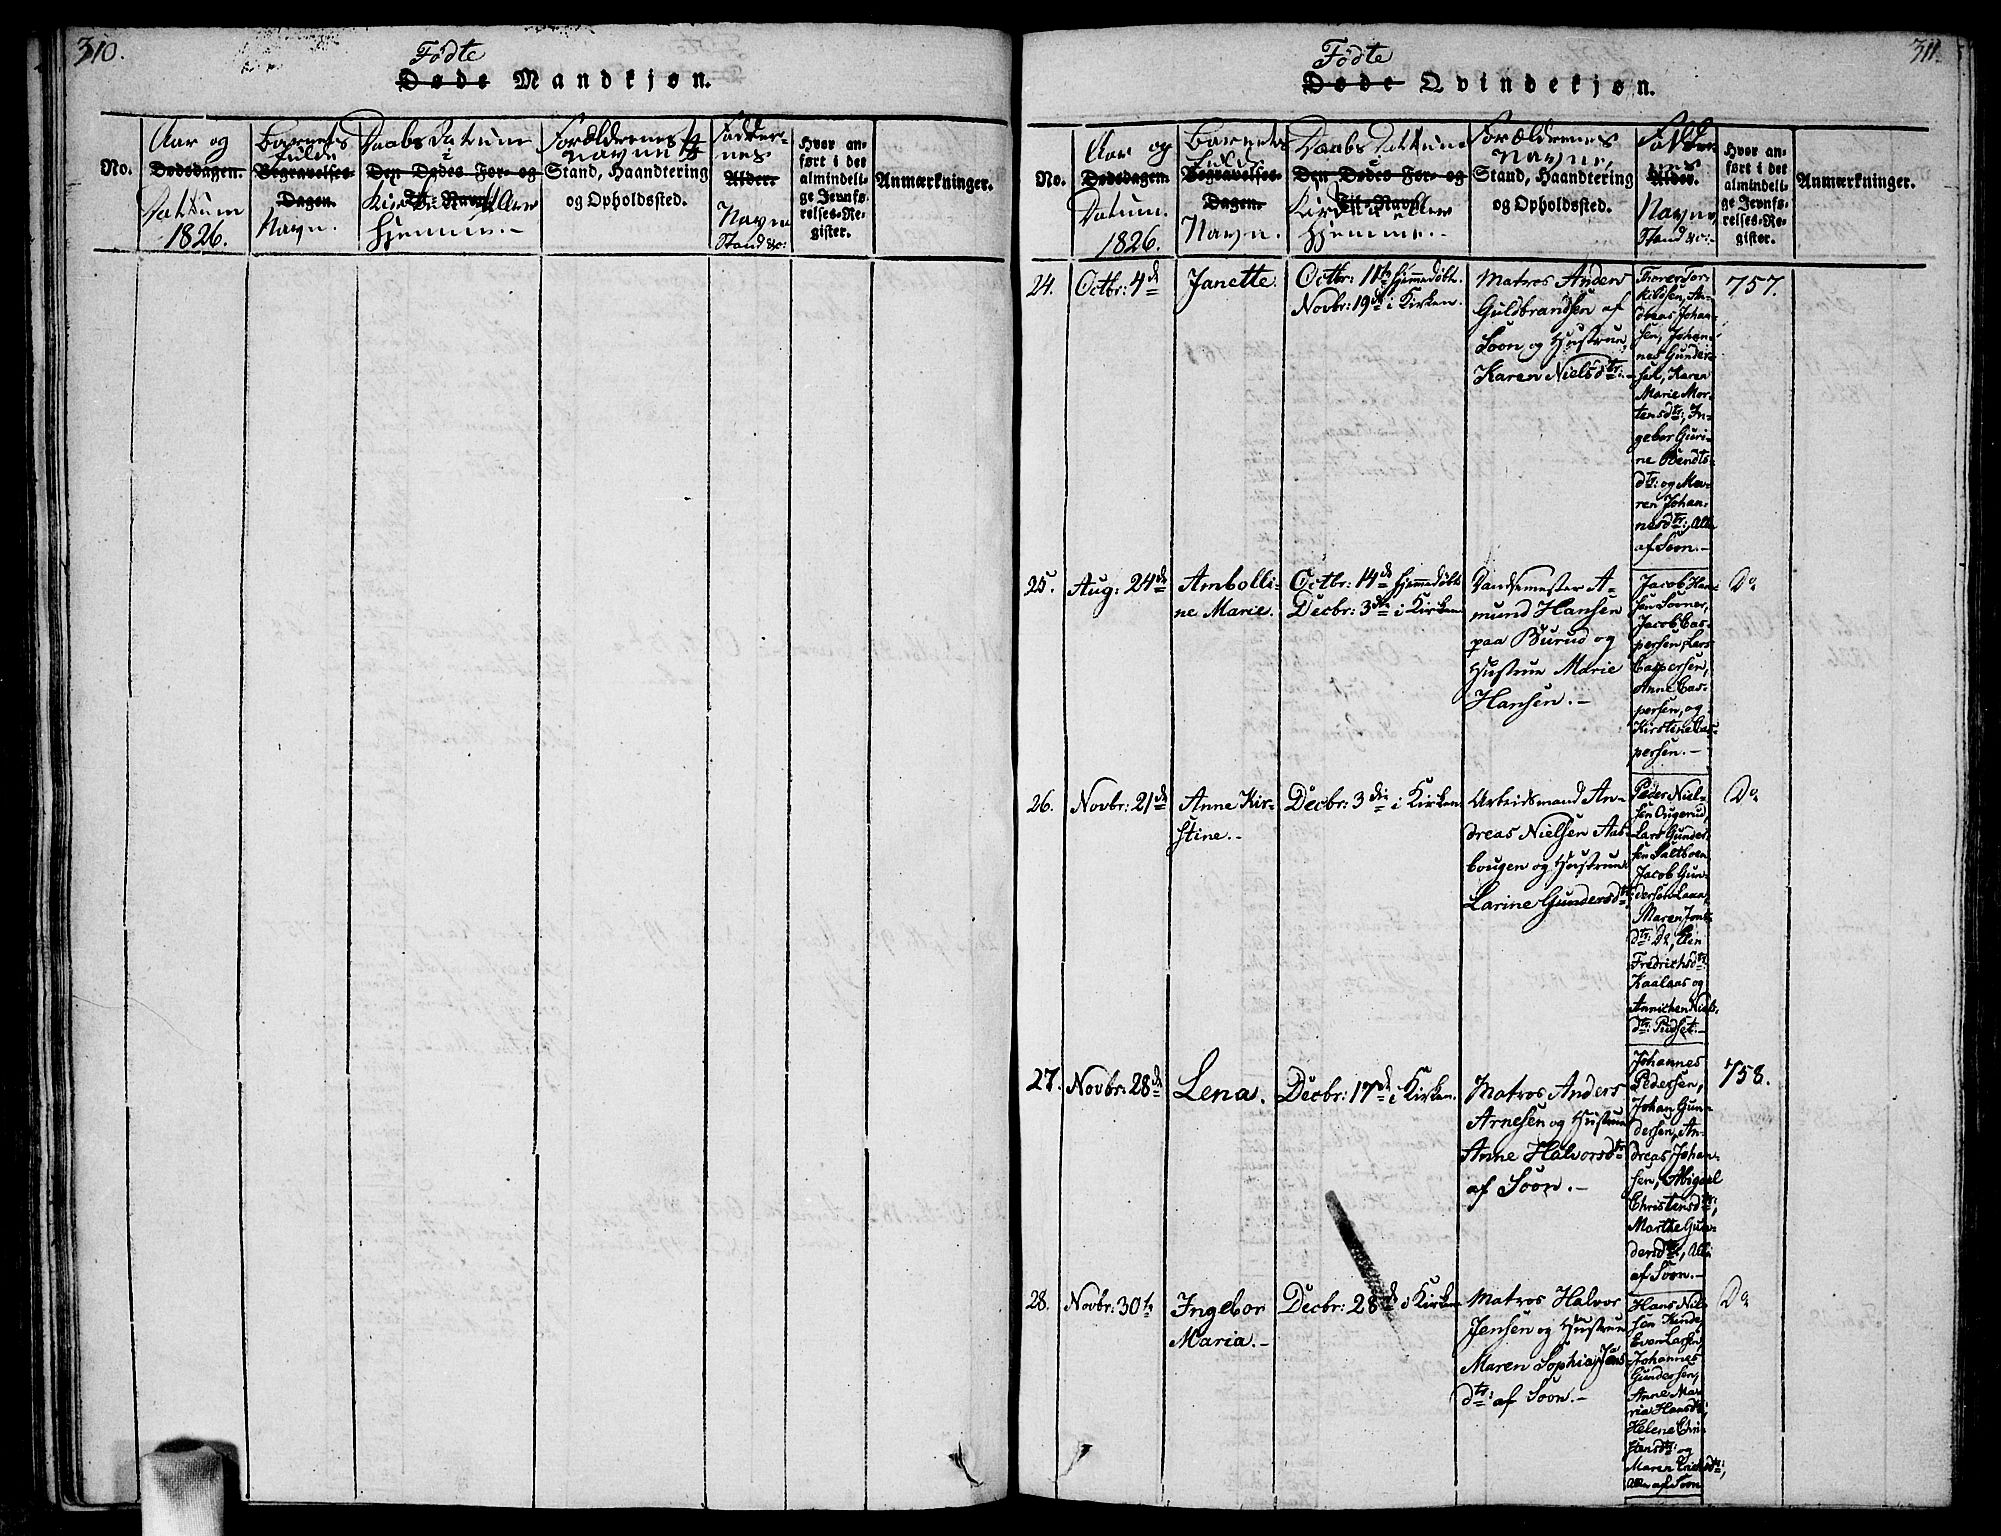 310.
Fødte
Døde Mandkjøn.
No.
Aar og
Dødsdagen.
Dattum
1826.
Barnets
fulde
Begravelses-
Dagen.
Navn.
Daabs Datum
i
Den Dødes For- og
Til-Navn
Kirken eller
Hjemme.-
Forældrenes
Navne
Stand, Haandtering
og Opholdssted.
Fadder-
nes
Alder.
Navne
Stand &c:
Hvor an-
ført i det
almindeli-
ge Jevnfø-
relses-Re-
gister.
Anmærkninger.
311.
Fødte
Døde Qvindekjøn.
No.
Aar og
Dødsdagen.
Datum.
1826.
Barnets
fulde
Begravelses-
Dagen.
Navn.
Daabs Dattum
Den Dødes For- og
Til-Navn
Kirke eller
Hjemme.-
Forældrenes
Navne,
Stand, Haandtering
og Opholdssted.
Fadder-
nes
Alder.
Navne,
Stand &c:-
Hvor an-
ført i det
almindeli-
ge Jevnfø-
relses-Re-
gister.
Anmærkninger.
24.
Octbr: 4de
Janette.
Octbr: 11te hjemmedøbt.
Novbr: 19de i Kirken.
Matros Anders
Guldbrandsen af
Soon og Hustrue,
Karen Nielsdtr:-
Torer Tor-
kildsen, An-
dreas Johan-
sen, Johan-
nes Gunder-
sen, Karen
Marie Mor-
tensdtr:, In-
gebor Guri-
ne Bendts-
dtr: og Ma-
ren Johan-
nesdtr:, Alle
af Soon.-
757.
25.
Aug: 24de
Ambolli-
ne Marie.
Octbr: 14de hjemmedøbt
Decbr: 3die i Kirken
Dandsemester A-
mund Hansen
paa Burud og
Hustrue Marie
Hansen.-
Jacob Han-
sen Soner,
Jacob Cas-
persen, Lars
Caspersen,
Anne Cas-
persen, og
Kirstine Cas-
persen.-
Do
26.
Novbr: 21de
Anne Kir-
stine.-
Decbr: 3die i Kirken
Arbeidsmand An-
dreas Nielsen Aas-
bougen og Hustrue
Larine Gundersdtr:
Peder Niel-
sen
Lars Gunder-
sen Saltboen
Jacob Gun-
dersen
Maren Jons-
dtr: Do,
Fredrichsdtr:
Kaalaas og
Annichen Niels-
dtr:
Do
27.
Novbr: 28de
Lena.
Decbr: 17de i Kirken.
Matros Anders
Arnesen og Hustrue
Anne Halvorsdtr:
af Soon.-
Johannes
Pedersen,
Johan Gun-
dersen, An-
dreas Johan-
sen, Abigael
Christensdtr:,
Marthe Gun-
dersdtr:, Alle
af Soon.-
758.
28.
Novbr: 30te
Ingebor
Maria.-
Decbr: 28de i Kirken
Matros Halvor
Jensen og Hustrue
Maren Sophia Jens-
dtr: af Soon.-
Hans Niel-
sen
Even Larsen,
Johannes
Gundersen,
Anne Ma-
ria Hansdtr:,
Helene Chri-
stensdtr: og
Maren Erichsdtr:,
Alle af Soon
Do